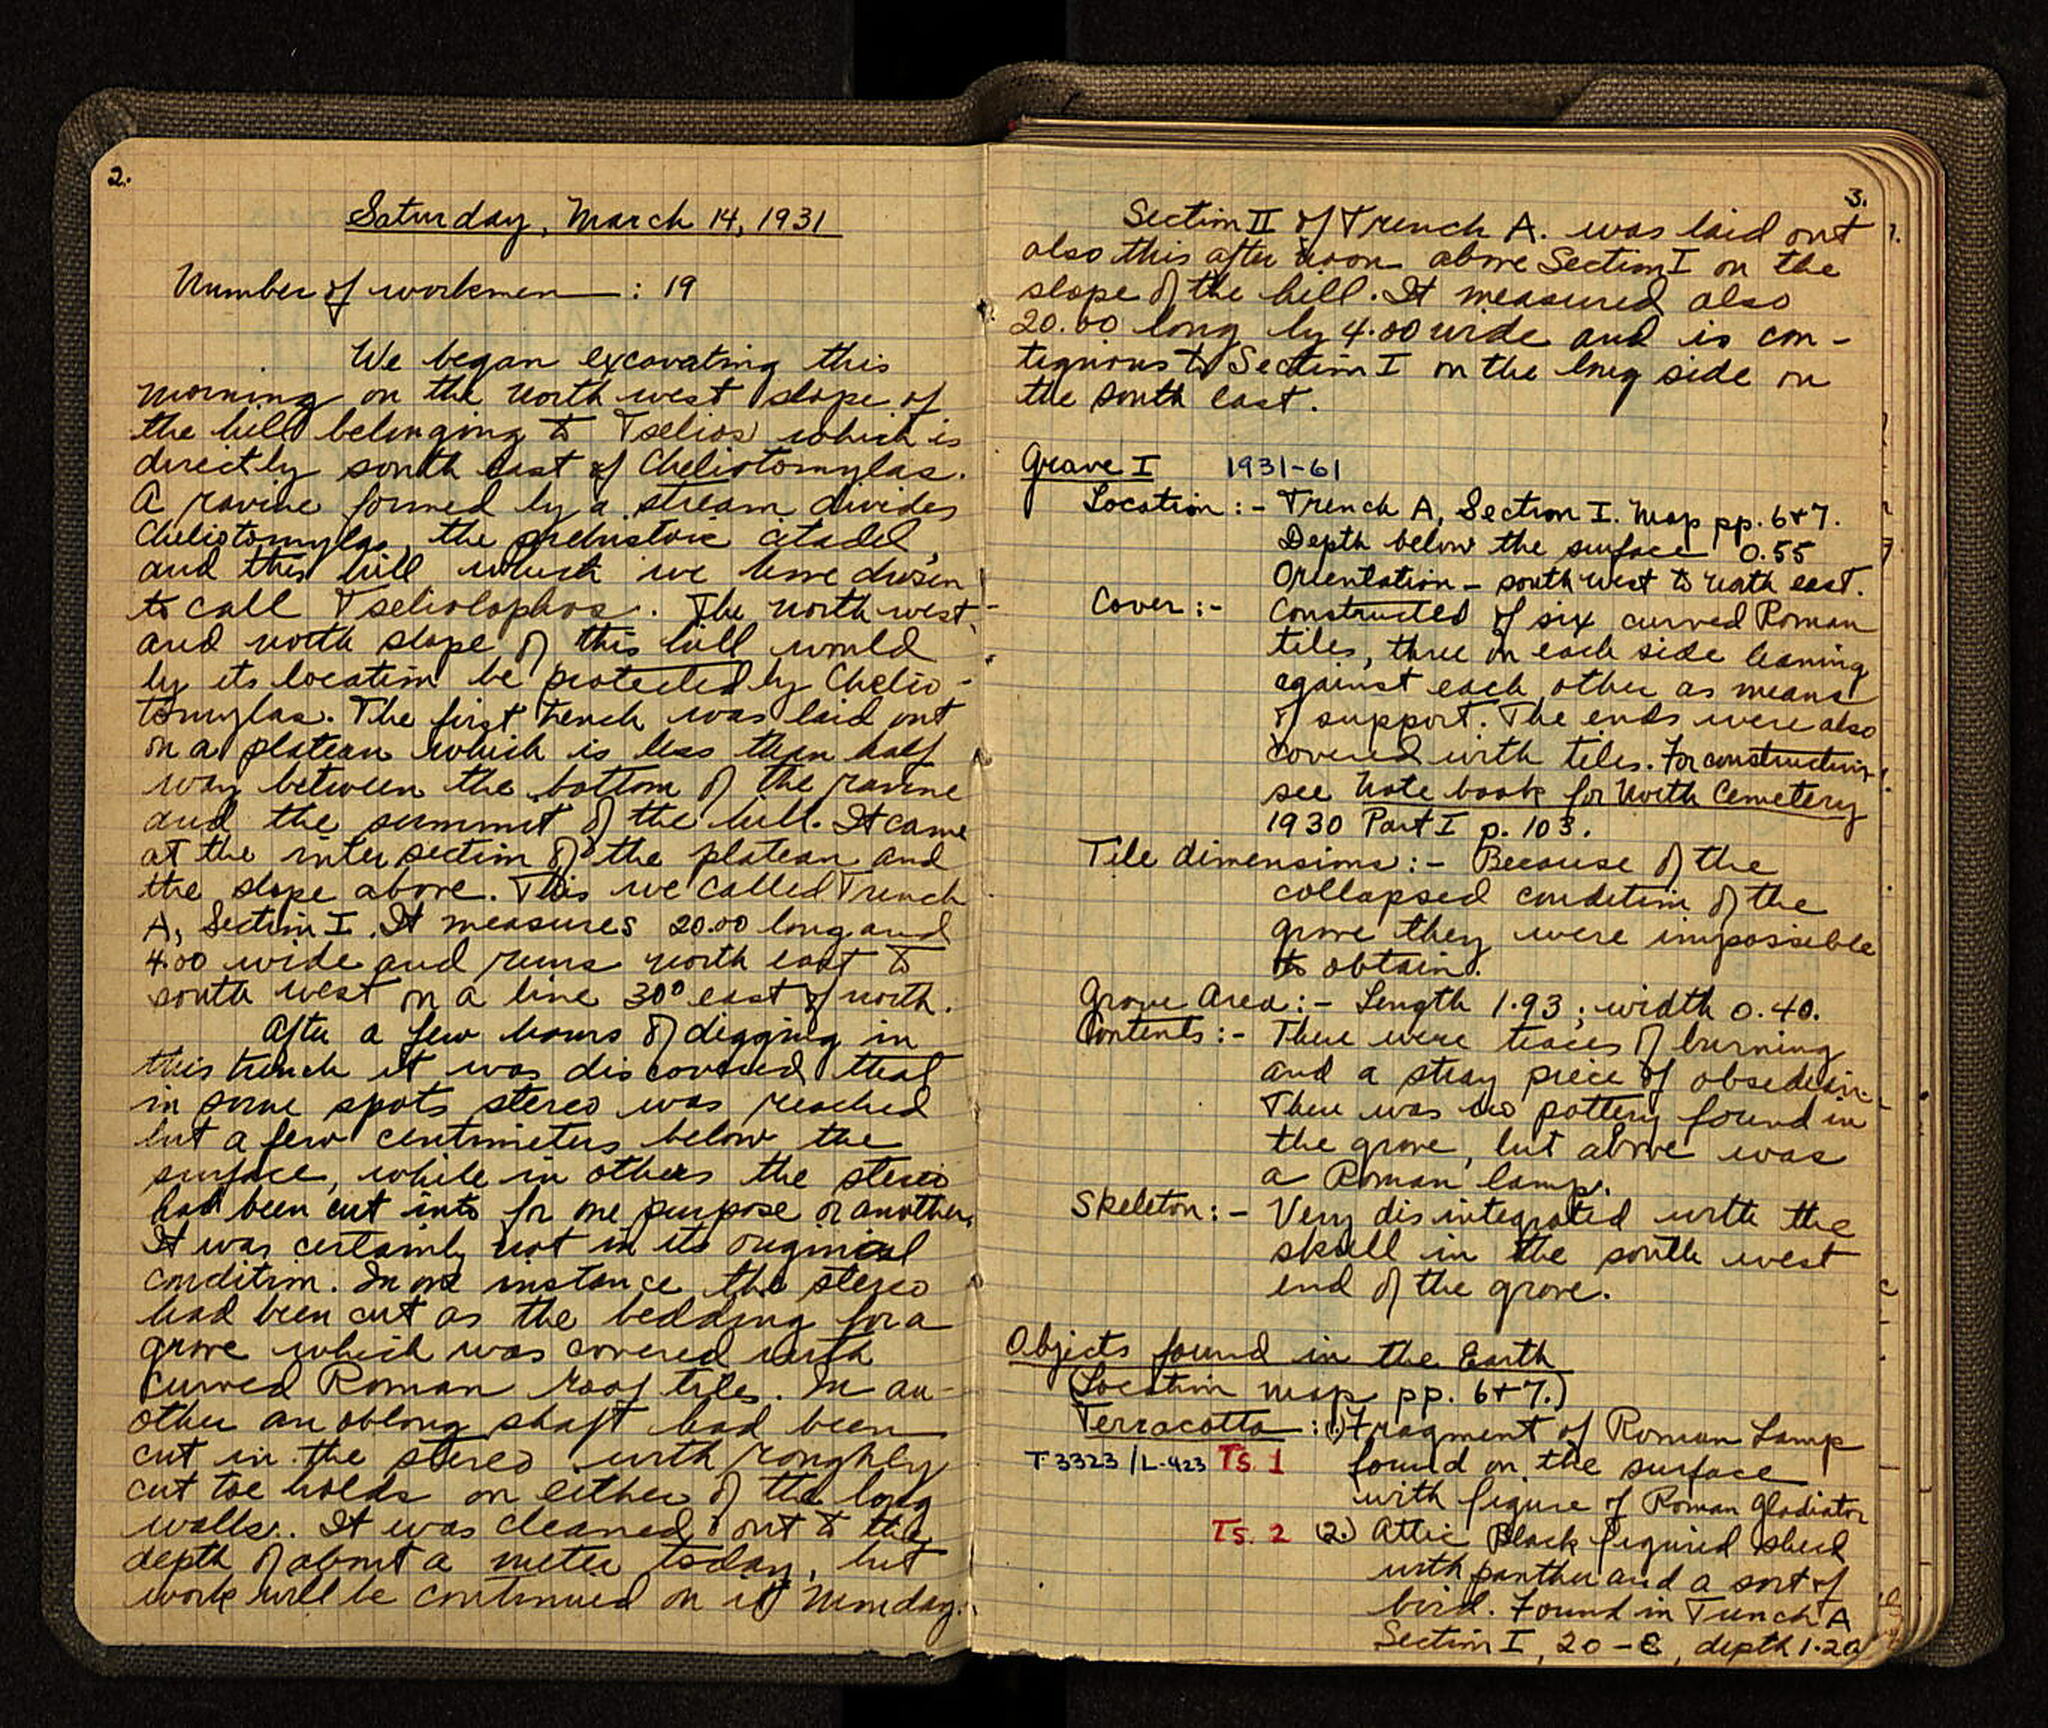 2.
Saturday, March 14, 1931
Number of workmen : 19
We began excavating this
morning on the north west slope of
the hill belonging to Tselios which is
directly south east of Cheliotomylos.
A ravine formed by a stream divides
Cheliotomylos, the prehistoric citadel,
and this hill which we have chosen
to call Tseliolophos. The north west
and north slope of this hill would
by its location be protected by Chelio-
tomylos. The first trench was laid out
on a plateau which is less than half
way between the bottom of the ravine
and the summit of the hill. It came
at the intersection of the plateau and
the slope above. This we called Trench
A, Section I. It measures 20.00 long and
4.00 wide and runs north east to
south west on a line 30° east of north.
After a few hours of digging in
this trench it was discovered that
in some spots stereo was reached
but a few centimeters below the
surface, while in others the stereo
had been cut into for one purpose or another.
It was certainly not in its original
condition. In one instance the stereo
had been cut as the bedding for a
grave which was covered with
curved Roman roof tiles. In an-
other an oblong shaft had been
cut in the stereo with roughly
cut toe holds on either of the long
walls. It was cleaned out to the
depth of about a meter today, but
work will be continued on it Monday.
3.
Section II of Trench A. was laid out
also this after noon above Section I on the
slope of the hill. It measured also
20.00 long by 4.00 wide and is con-
tiguous to Section I on the long side on
the south east.
Grave I 1931-61
Location :- Trench A, Section I. Map pp. 6+7.
Depth below the surface 0.55
Orientation - south west to north east.
Cover :- Constructed of six curved Roman
tiles, three on each side leaning
against each other as means
of support. The ends were also
covered with tiles. For construction
see Note book for North Cemetery
1930 Part I p. 103.
Tile dimensions :- Because of the
collapsed condition of the
grave they were impossible
to obtain.
Grave Area :- Length 1.93 ; width 0.40.
Contents :- There were traces of burning
and a stray piece of obsedian.
There was no pottery found in
the grave, but above was
a Roman lamp.
Skeleton :- Very disintegrated with the
skull in the south west
end of the grave.
Objects found in the Earth
(Location map pp. 6+7.)
Terracotta : (1) Fragment of Roman Lamp
T 3323/L-423 Ts. 1 found on the surface
with figure of Roman Gladiator
Ts. 2 (2) Attic Black figured sherd
with panther and a sort of
bird. Found in Trench A
Section I, 20 - C, depth 1.20